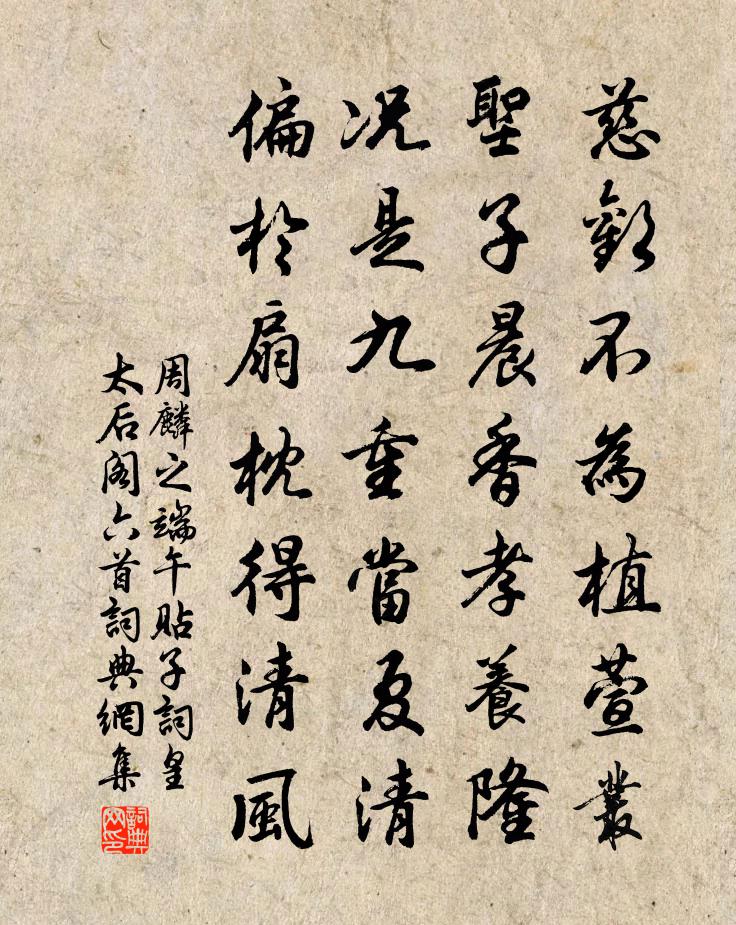 慈歡不為植萱叢
聖子晨香孝養隆
况是九重當夏清
偏於扇枕得清風
周麟之端午貼子詞皇
太后阁六首詞典網集
詞典
网印